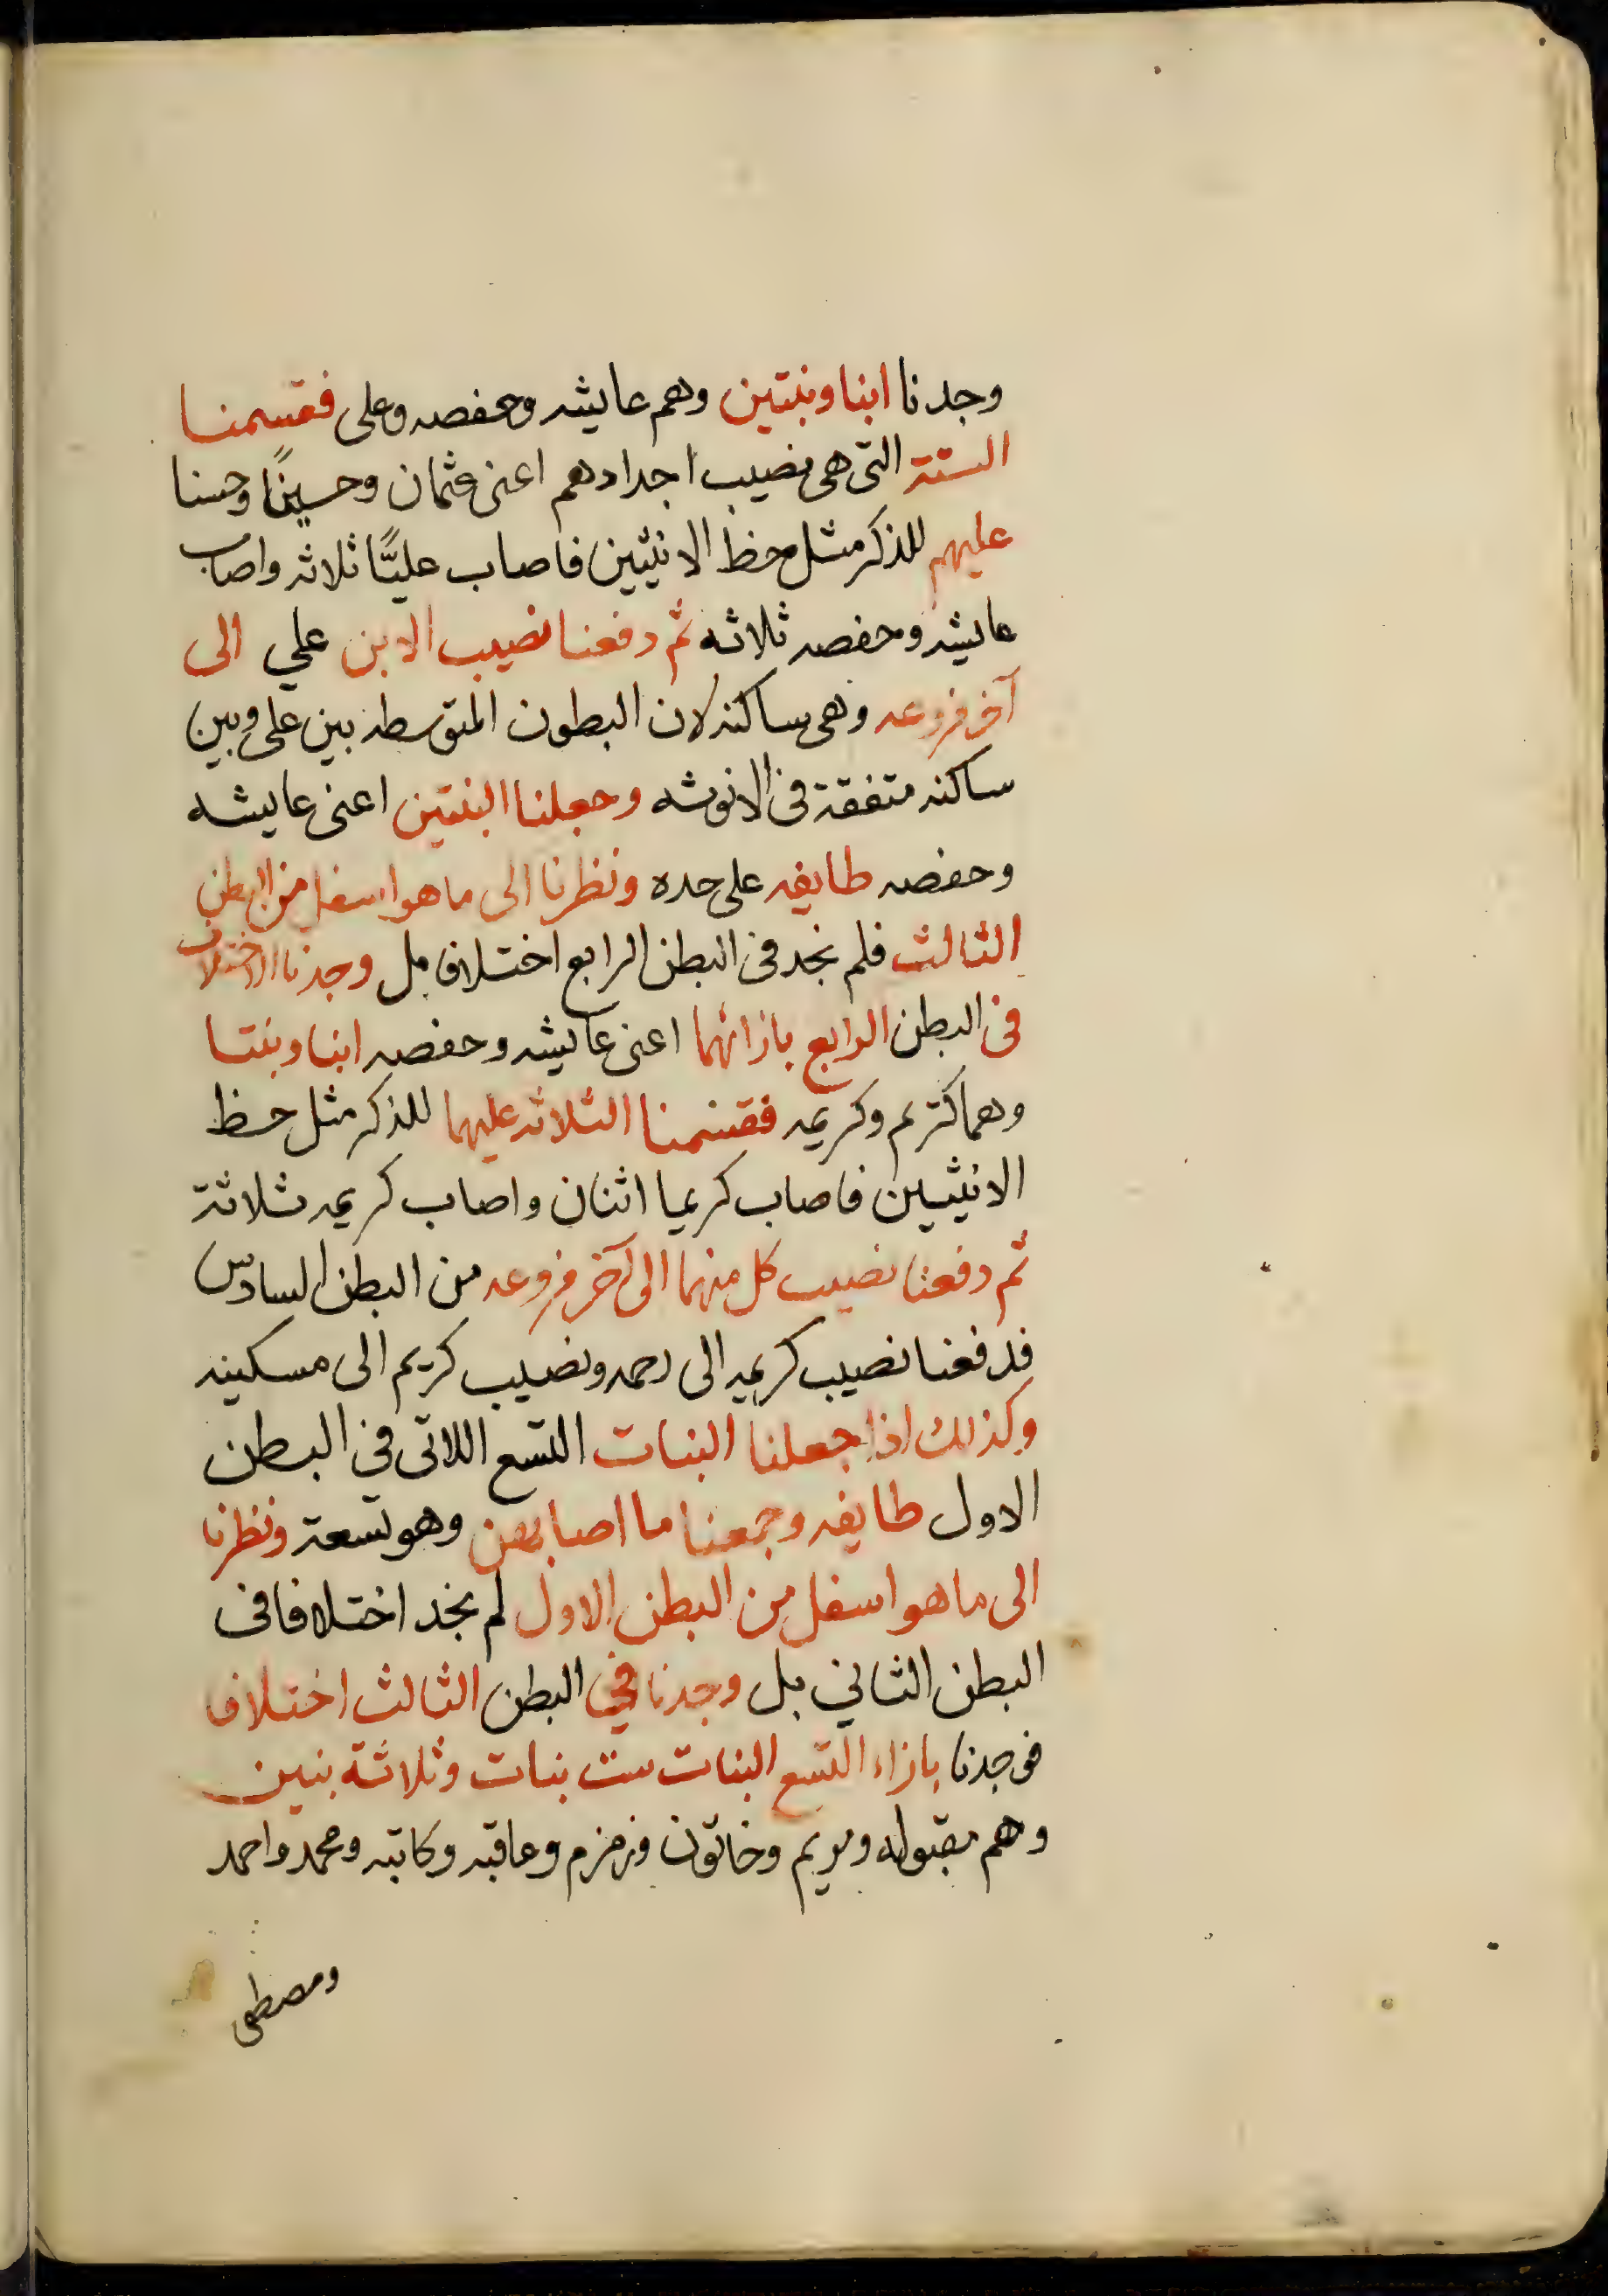 وجدنا ابنا وبنتين وهم عايشه وحفصه وعلى فقسمنا
الستة التى هى نصيب اجدادهم اعنى عثمان وحسينًا وحسنا
عليهم للذكر مثل حظ الانثيين فاصاب عليًّا ثلاثه واصاب
عايشه وحفصه ثلاثه ثم دفعنا نصيب الابن علي الى
آخر فروعه وهى ساكنه لان البطون المتوسطه بين على وبين
ساكنه متفقة فى الانوثه وجعلنا البنتين اعنى عايشه
وحفصه طايفه على حده ونظرنا الى ما هو اسفل من البطن
الثالث فلم نجد فى البطن الرابع اختلاف بل وجدنا الاختلاف
فى البطن الرابع بازائهما اعنى عايشه وحفصه ابنا وبنتا
وهما كريم وكريمه فقسمنا الثلاثه عليهما للذكر مثل حظ
الانثيين فاصاب كريما اثنان واصاب كريمه ثلاثة
ثم دفعنا نصيب كل منهما الى آخر فروعه من البطن السادس
فدفعنا نصيب كريمه الى رحمه ونصيب كريم الى مسكينه
وكذلك اذا جعلنا البنات التسع اللاتى في البطن
الاول طايفه وجمعنا ما اصابهن وهو تسعة ونظرنا
الى ما هو اسفل من البطن الاول لم نجد اختلافا فى
البطن الثاني بل وجدنا في البطن الثالث اختلاف
فوجدنا بازاء التسع البنات ست بنات وثلاثة بنين
وهم مقبوله ومريم وخاتون وزمزم وعاقبه وكاتبه ومحمد واحمد
ومصطفى